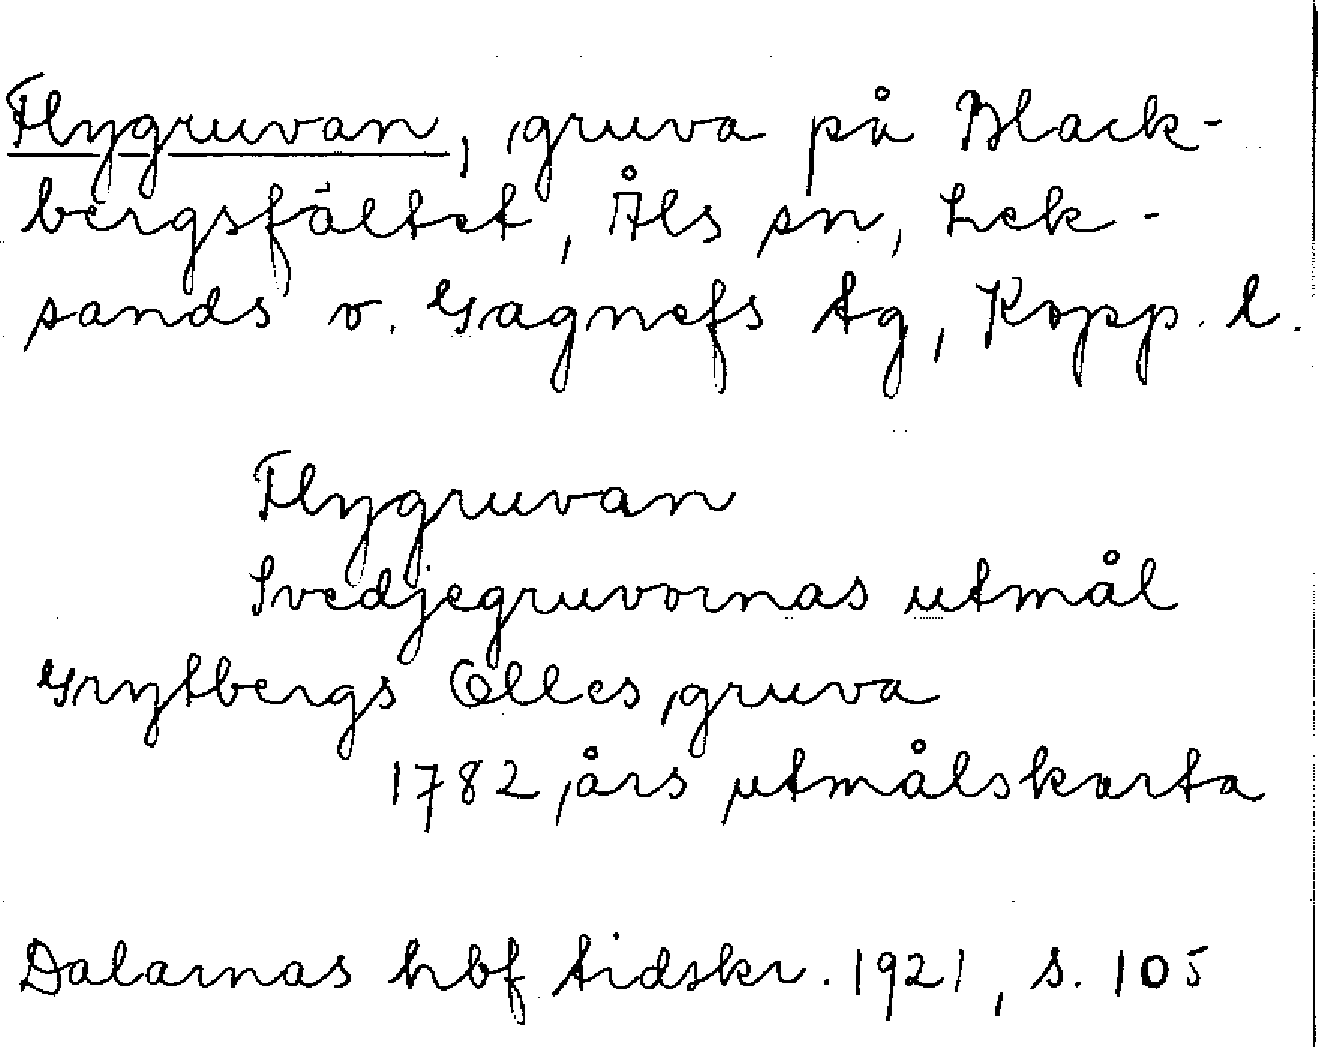 Flygruvan, gruva på Black-
bergsfältet, Åls sn, Lek-
sands o. Gagnefs tg, Kopp. l.
Flygruvan
Svedjegruvornas utmål
Grytbergs Olles gruva
1782 års utmålskarta
Dalarnas hbf tidskr. 1921, s. 105